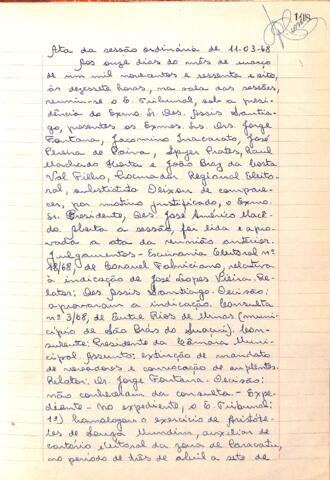 108
Ata da sessão ordinária de 11-03-68
Aos onze dias do mês de março
de um mil novecentos e sessenta e oito,
às dezessete horas, na sala das sessões,
reuniu-se o E. Tribunal, sob a presi-
dência do Exmo. Sr. Des. Assis Santia-
go, presentes os Exmos. Srs. Drs. Jorge
Fontana, Jacomino Inacarato, José
Pereira de Paiva, Speyer Prates, Raul
Machado Horta e João Braz da Costa
Val Filho, Procurador Regional Eleito-
ral, substituto. Deixou de compare-
cer, por motivo justificado, o Exmo.
Sr. Presidente, Des. José Américo Mace-
do. Aberta a sessão, foi lida e apro-
vada a ata da reunião anterior.
Julgamentos - Escrivania Eleitoral nº
18/68, de Coronel Fabriciano, relativa
à indicação de José Lopes Vieira. Re-
lator: Des. Assis Santiago. Decisão:
aprovaram a indicação. Consulta
nº 3/68, de Entre Rios de Minas (muni-
cípio de São Brás do Suaçuí). Con-
sulente: Presidente da Câmara Muni-
cipal. Assunto: extinção de mandato
de vereadores e convocação de suplentes.
Relator: Dr. Jorge Fontana. Decisão:
não conheceram da consulta. - Expe-
diente - No expediente, o E. Tribunal:
1º) homologou o exercício de Aristóte-
les de Souza Mundim, auxiliar de
cartório eleitoral da zona de Paracatu,
no período de três de abril a sete de